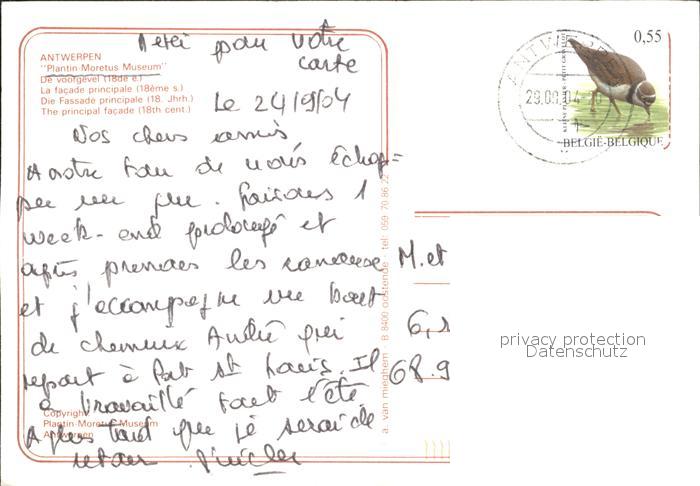 Merci pour votre
carte
ANTWERPEN
"Plantin-Moretus Museum"
De voorgevel (18de e.)
La façade principale (18ème s.)
Die Fassade principale (18. Jhrh.)
The principal façade (18th cent.)
Le 24/9/04
Nos chers amis
A notre tour de nous échap=
per un peu. Faisons 1
week-end prolongé et
après prendre les M. et
et j'accompagne un bout
de André qui 6,1
repart à Port St Louis. Il 68.9
a travaillé tout l'été
A plus tard que je serai de
retour.
Copyright
Plantin-Moretus Museum
Antwerpen
a. van mieghem - B 8400 oostende - tel: 059 70 86 22
ANTWERPEN
29.09.04
0,55
BELGIË-BELGIQUE
privacy protection
Datenschutz